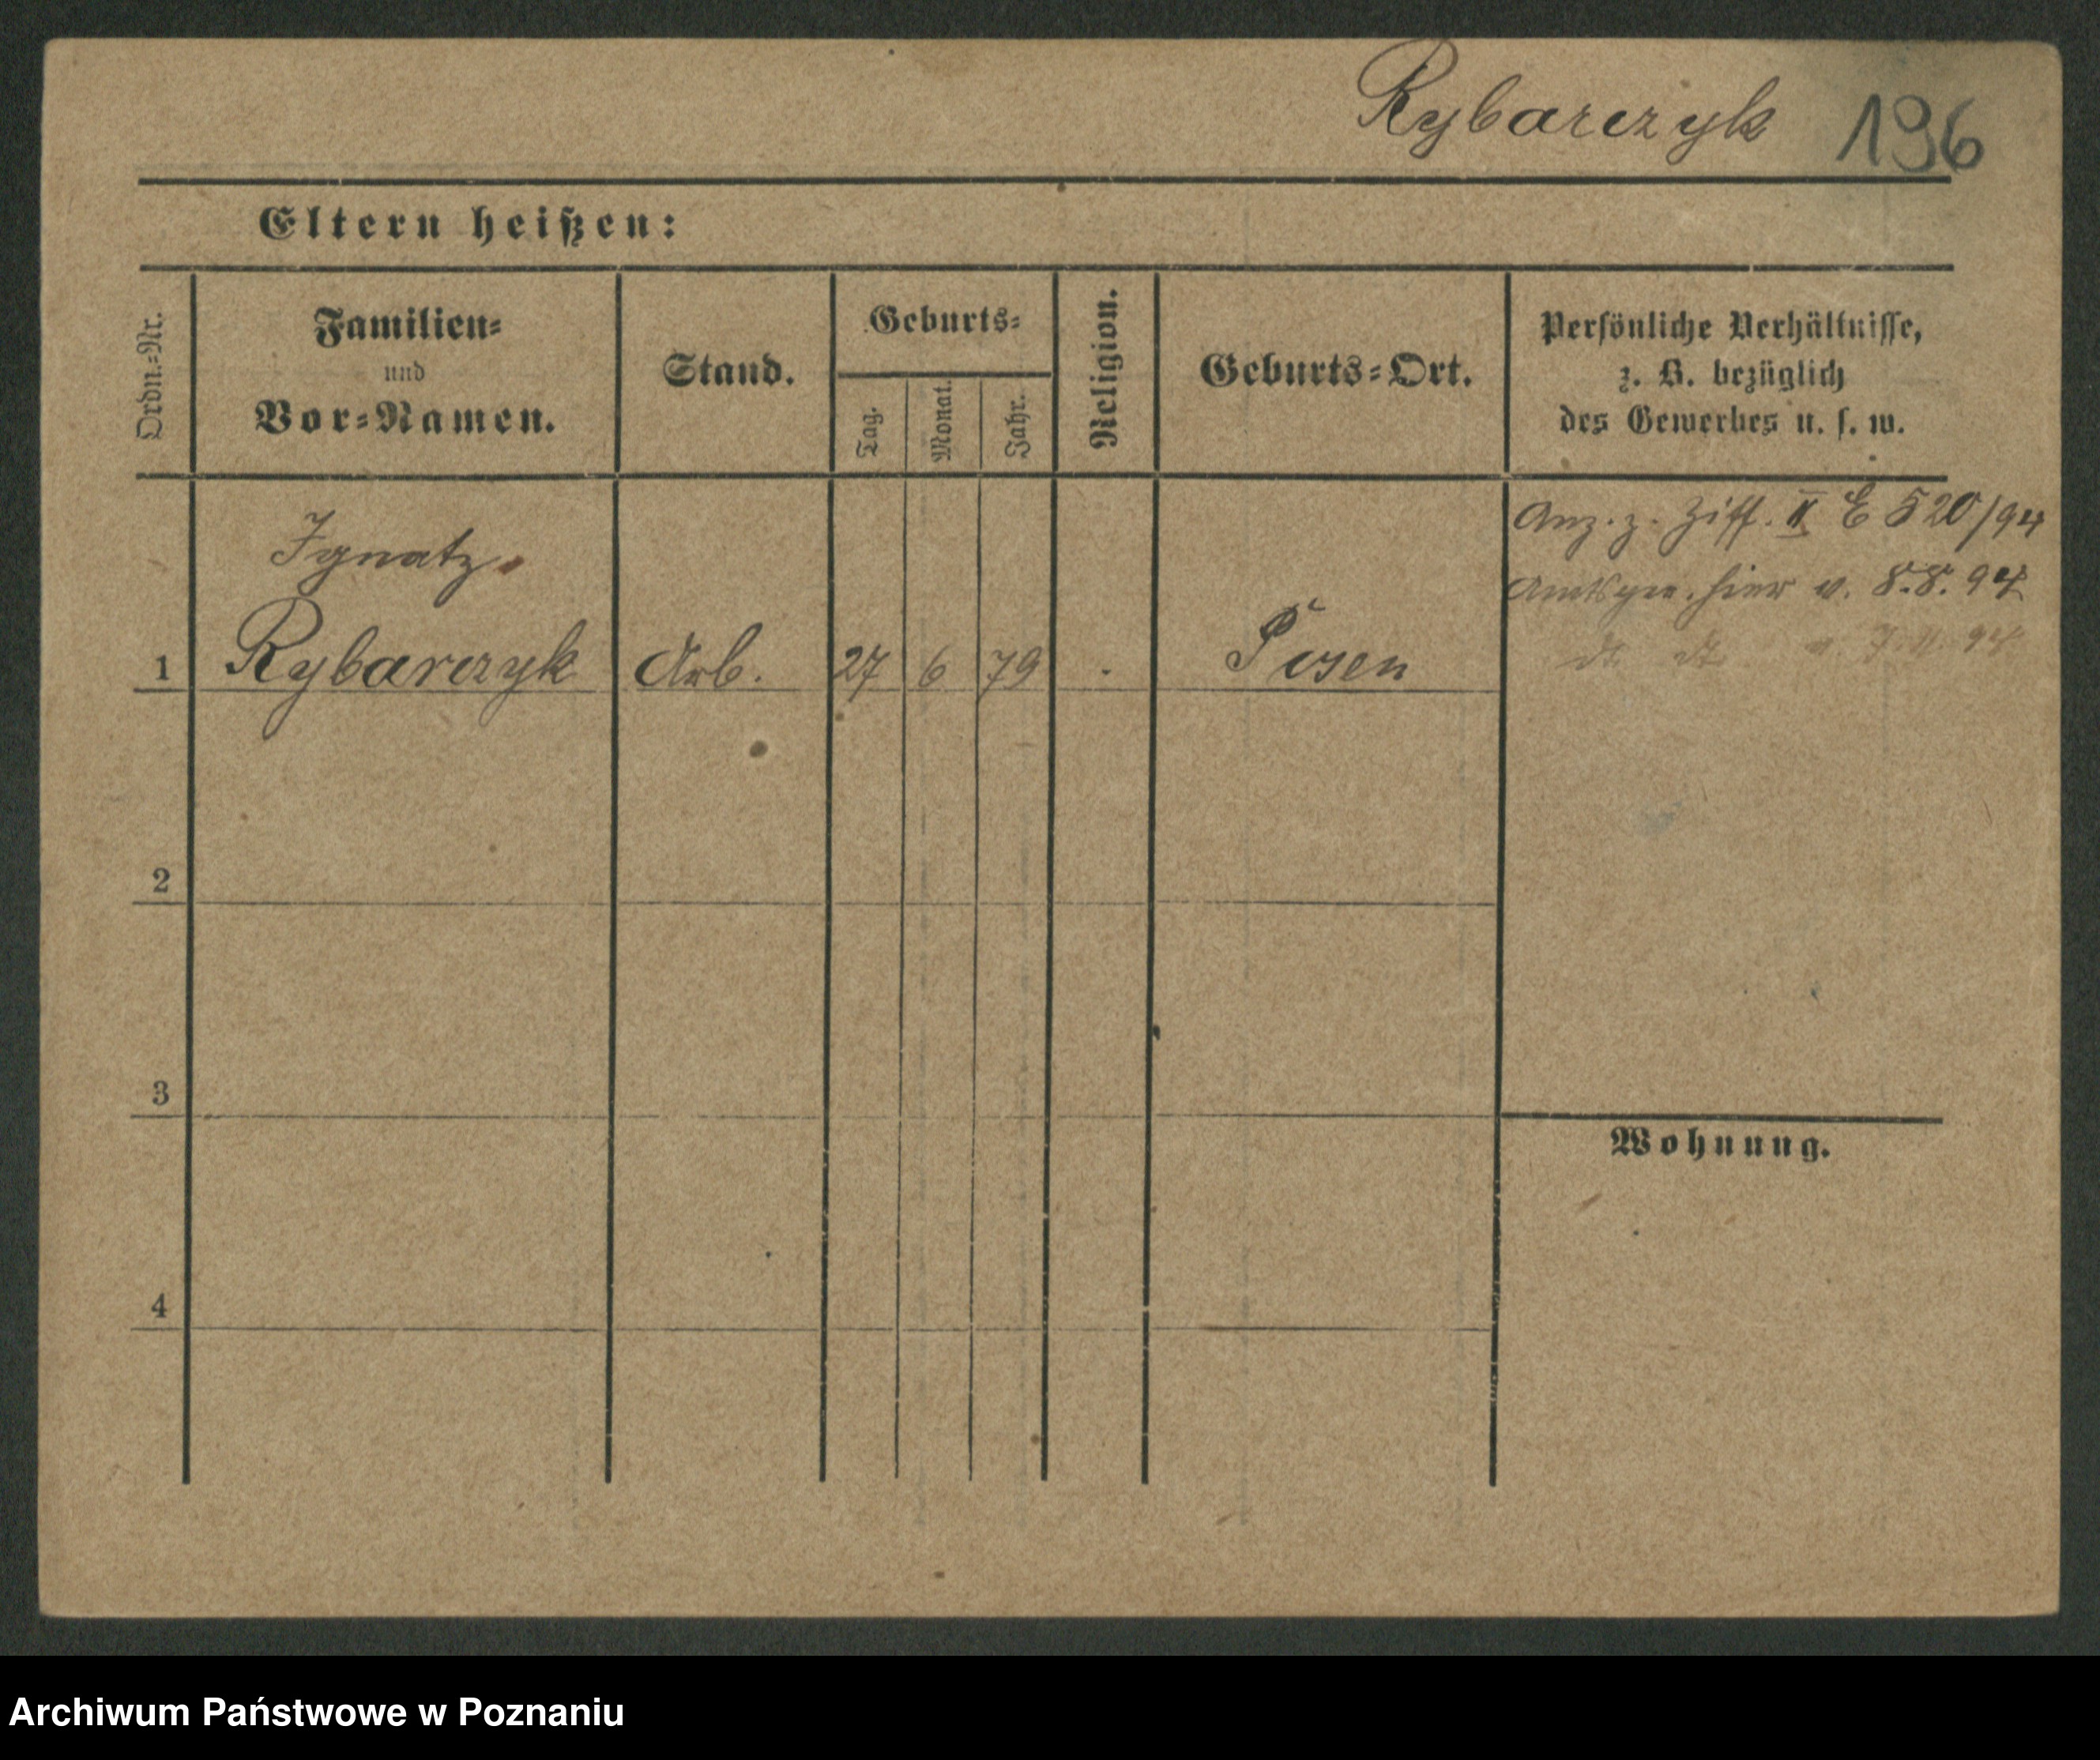 Rybarczyk 196
Eltern heißen:
Ordn.=Nr.
Familien=
und
Vor=Namen.
Stand.
Geburts=
Tag.
Monat.
Jahr.
Religion.
Geburts=Ort.
Persönliche Verhältnisse,
z. B. bezüglich
des Gewerbes u. s. w.
Anz. z. Ziff. II E 520/94
Amtsger. hier v. 8.8.94
dt dt v. 94
Ignatz
1 Rybarczyk Arb. 27 6 79 . Posen
2
3
Wohnung.
4
Archiwum Państwowe w Poznaniu